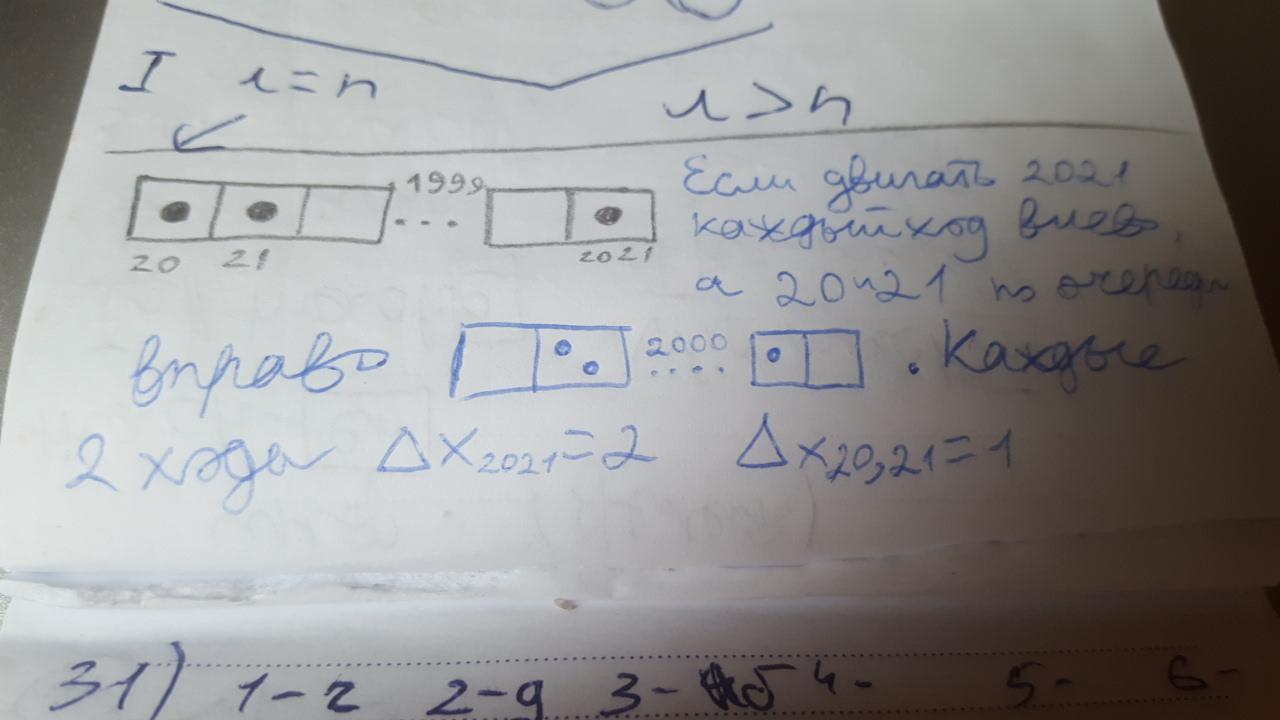 I n = n
n > n
1999
20 21 2021
Если двигать 2021
каждый ход влево,
а 20 и 21 по очереди
вправо 2000 . Каждые
2 хода Δx2021=2 Δx20,21=1
31) 1-г 2-д 3-б 4- 5- 6-